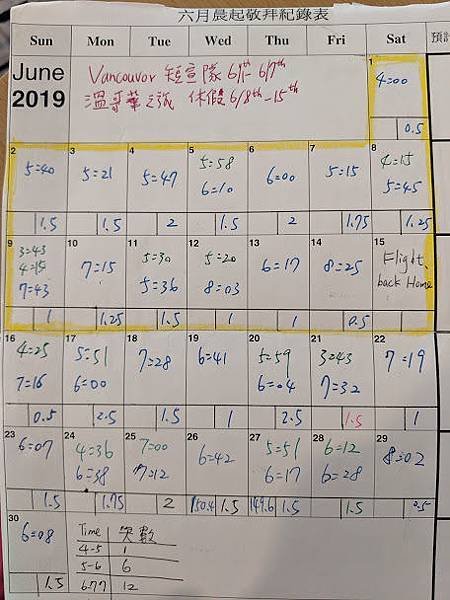 六月晨起敬拜紀錄表
Sun Mon Tue Wed Thu Fri Sat 預計
June
2019
Vancouver 短宣隊 6/1st- 6/7th
溫哥華之旅 休假 6/8th-15th
1
4:00
0.5
2 3 4 5 6 7 8
5:40 5:21 5:47 5:58 6:00 5:15 4:15
6:10 5:45
1.5 1.5 2 1.5 2 1.75 1.25
9 10 11 12 13 14 15
3:43 7:15 5:30 5:20 6:17 8:25 Flight
4:15 5:36 8:03 back Home
7:43
1 1.25 1.5 1 1 0.5
16 17 18 19 20 21 22
4:25 5:51 7:28 6:41 5:59 3:43 7:19
7:16 6:00 6:04 7:32
0.5 2.5 1.5 1 2.5 1.5 1
23 24 25 26 27 28 29
6:07 4:36 7:00 6:42 5:51 6:12 8:02
6:38 7:12 6:17 6:28
1.5 1.75 2 150.4 1.5 149.6 1.5 1.5 0.5
30
6:08
1.5
Time 天數
4-5 1
5-6 6
6-7 12